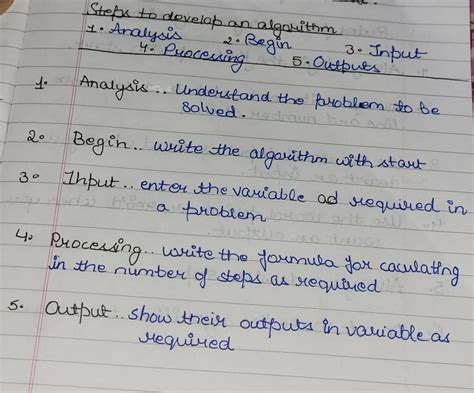 Steps to develop an algorithm
1. Analysis 2. Begin 3. Input
4. Processing 5. Outputs
1. Analysis.. Understand the problem to be
solved.
2. Begin.. write the algorithm with start
3. Input.. enter the variable ad required in
a problem
4. Processing.. write the formula for caculating
in the number of steps as required
5. Output.. show their outputs in variable as
required